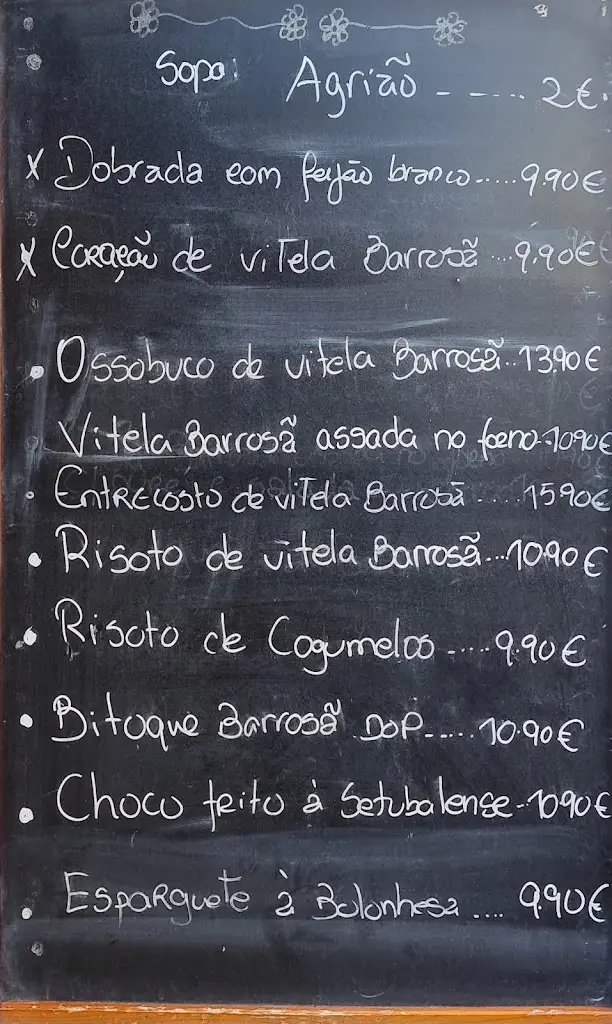 Sopa: Agrião - - ..... 2€.
x Dobrada com feijão branco.....9.90€
x Coração de vitela Barrosã ...9.90€
. Ossobuco de vitela Barrosã..13.90€
Vitela Barrosã assada no forno-10.90€
. Entrecosto de vitela Barrosã ....15.90€
. Risoto de vitela Barrosã...10.90€
. Risoto de Cogumelos .....9.90€
. Bitoque Barrosã DOP.....10.90€
. Choco frito à Setubalense-10.90€
. Esparguete à Bolonhesa .... 9.90€